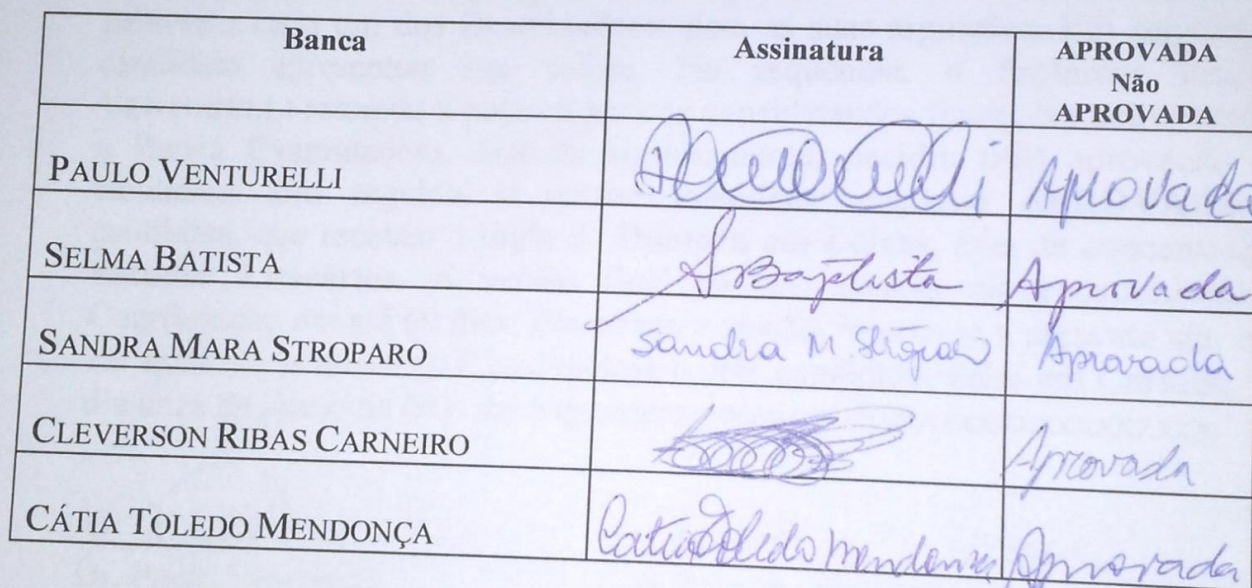 Banca Assinatura APROVADA
Não
APROVADA
PAULO VENTURELLI Aprovada
SELMA BATISTA SBaptista Aprovada
SANDRA MARA STROPARO Sandra M Aprovada
CLEVERSON RIBAS CARNEIRO Aprovada
CÁTIA TOLEDO MENDONÇA Catia Toledo Mendonça Aprovada